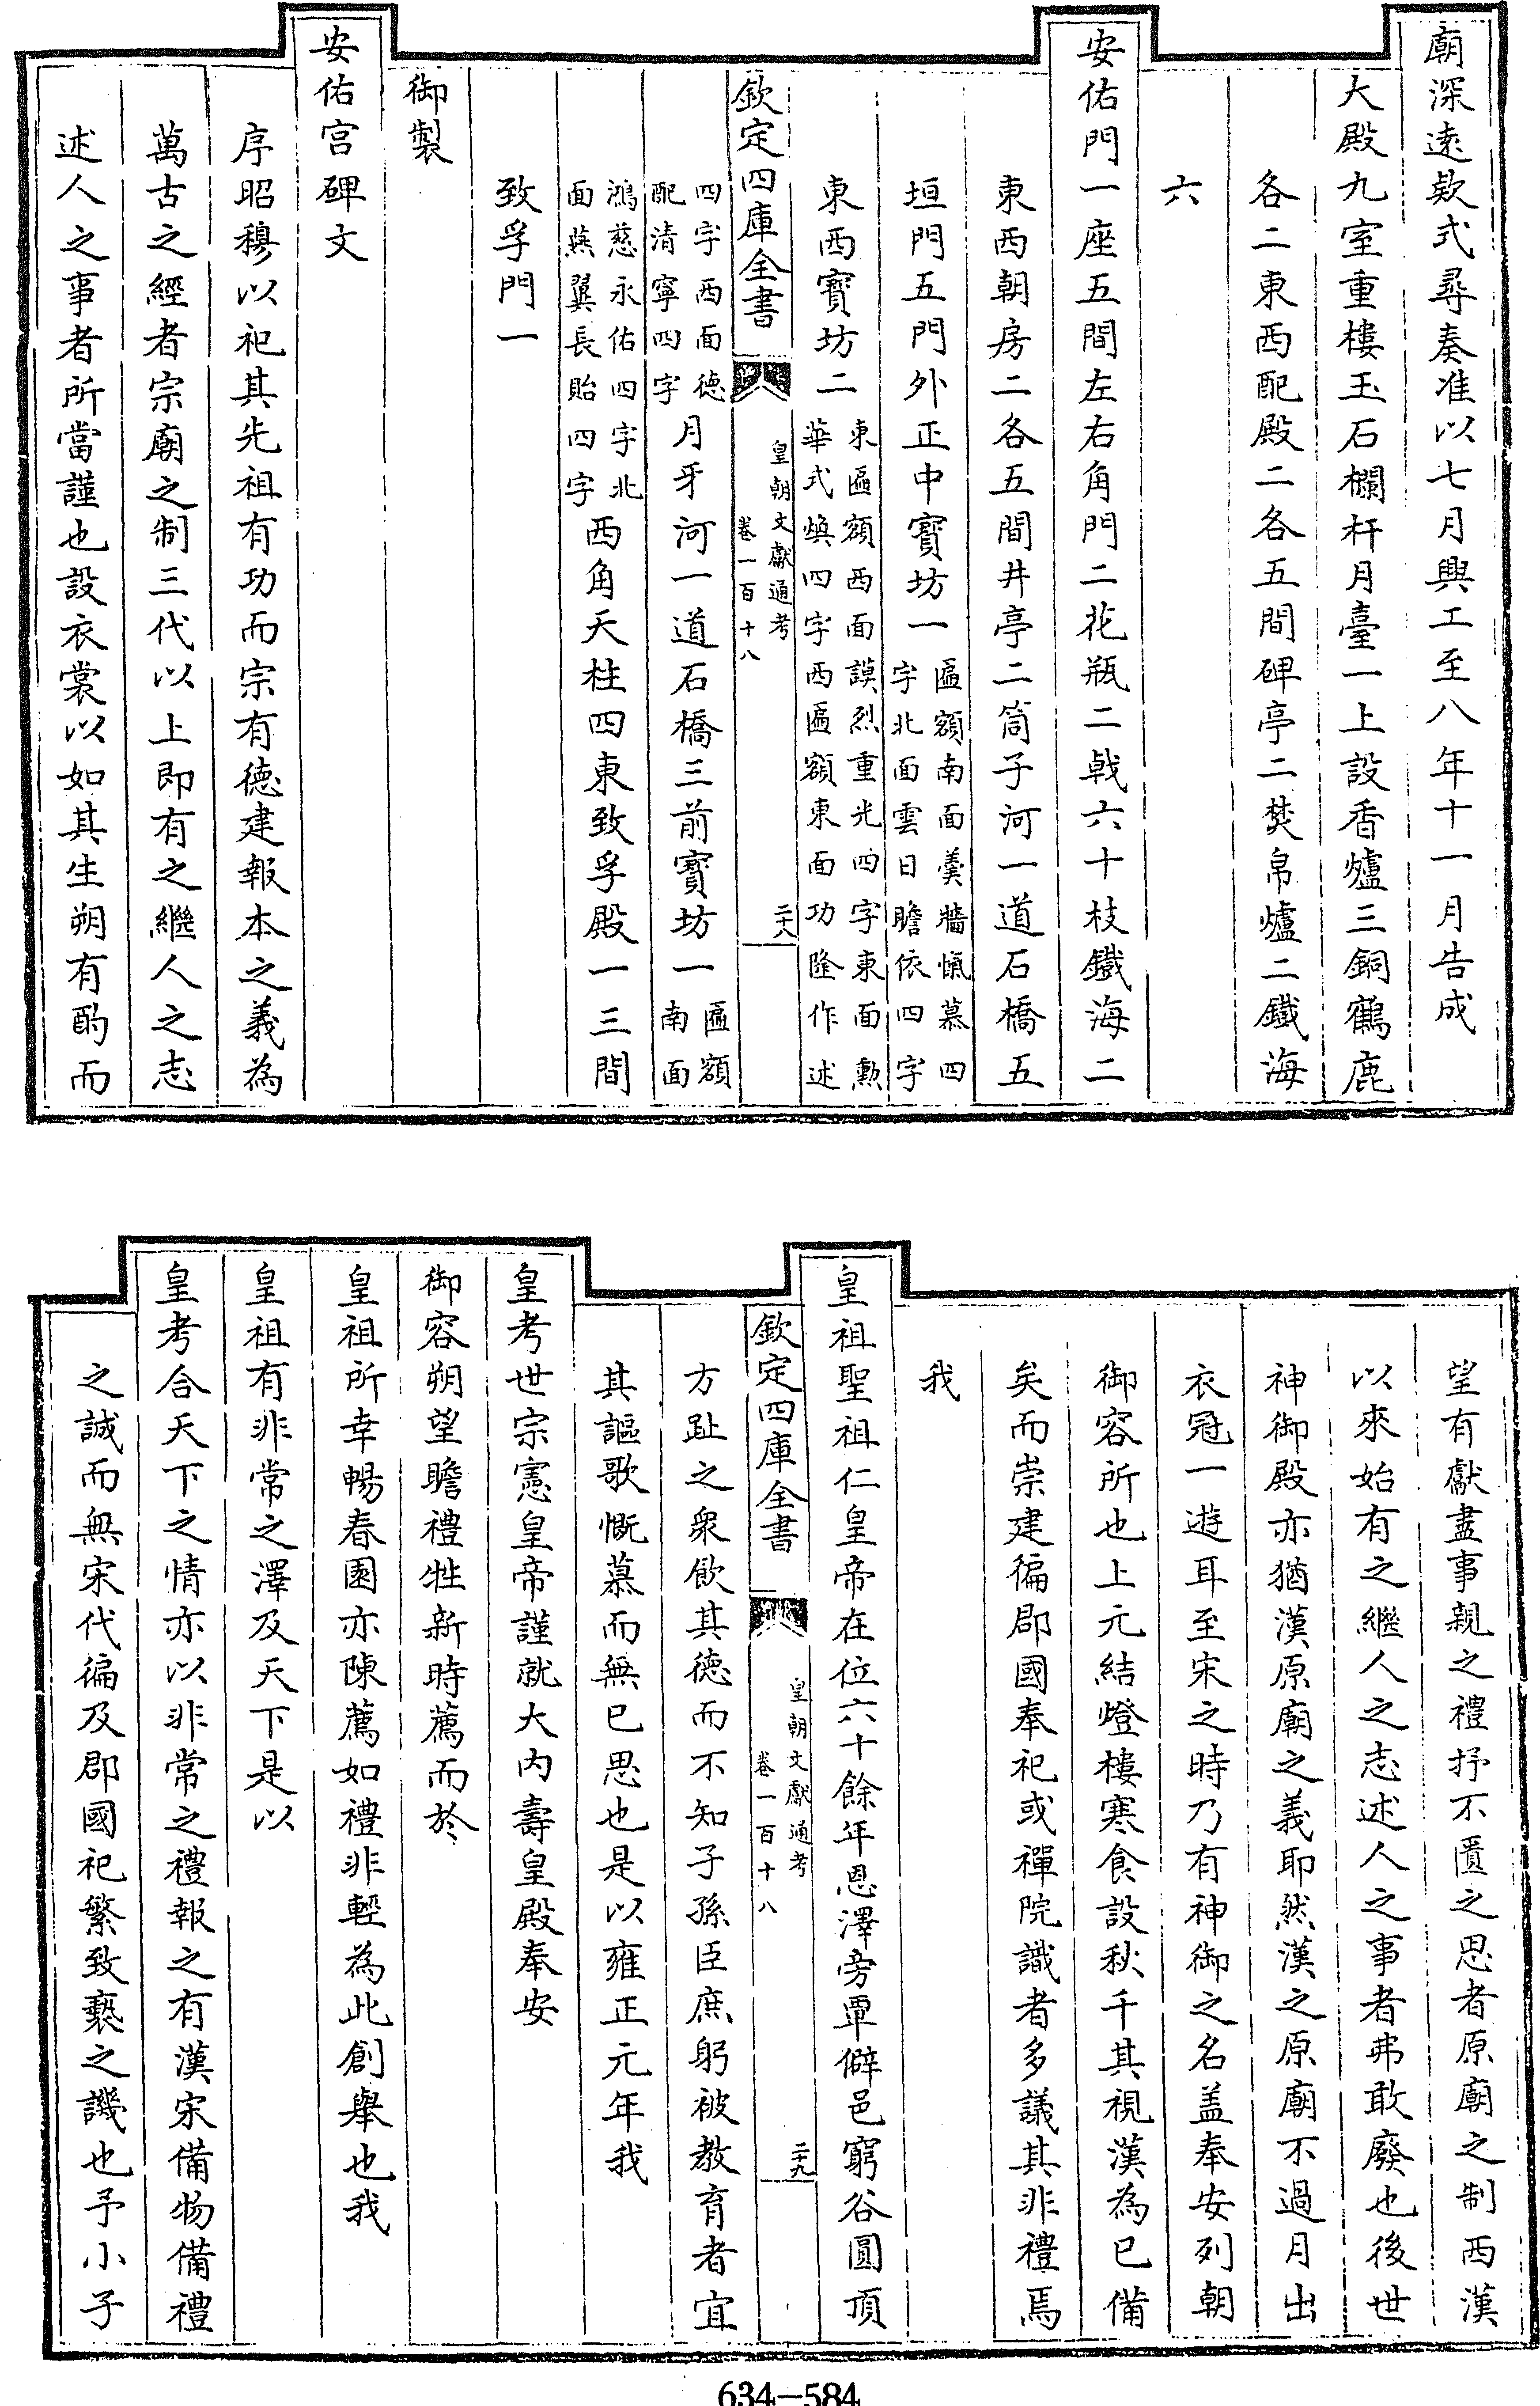 廟深遠欵式尋奏准以七月興工至八年十一月告成
大殿九室重樓玉石欄杆月臺一上設香爐三銅鶴鹿
各二東西配殿二各五間碑亭二焚帛爐二鐵海
六
安佑門一座五間左右角門二花瓶二戟六十枝鐵海二
東西朝房二各五間井亭二筒子河一道石橋五
垣門五門外正中寶坊一匾額南面羹牆愾慕四字北面雲日瞻依四字
東西寶坊二東匾額西面謨烈重光四字東面勳華式煥四字西匾額東面功隆作述
欽定四庫全書
皇朝文獻通考
卷一百十八
二十八
四字西面德配清寧四字月牙河一道石橋三前寶坊一匾額南面
鴻慈永佑四字北面燕翼長貽四字西角天柱四東致孚殿一三間
致孚門一
御製
安佑宮碑文
序昭穆以祀其先祖有功而宗有德建報本之義為
萬古之經者宗廟之制三代以上即有之繼人之志
述人之事者所當謹也設衣裳以如其生朔有酌而
望有獻盡事親之禮抒不匱之思者原廟之制西漢
以來始有之繼人之志述人之事者弗敢廢也後世
神御殿亦猶漢原廟之義耶然漢之原廟不過月出
衣冠一遊耳至宋之時乃有神御之名盖奉安列朝
御容所也上元結燈樓寒食設秋千其視漢為已備
矣而崇建徧郡國奉祀或禪院識者多議其非禮焉
我
皇祖聖祖仁皇帝在位六十餘年恩澤旁覃僻邑窮谷圓頂
欽定四庫全書
皇朝文獻通考
卷一百十八
二十九
方趾之衆飲其德而不知子孫臣庶躬被教育者宜
其謳歌慨慕而無已思也是以雍正元年我
皇考世宗憲皇帝謹就大内壽皇殿奉安
御容朔望瞻禮牲新時薦而於
皇祖所幸暢春園亦陳薦如禮非輕為此創舉也我
皇祖有非常之澤及天下是以
皇考合天下之情亦以非常之禮報之有漢宋備物備禮
之誠而無宋代徧及郡國祀繁致褻之譏也予小子
634-584